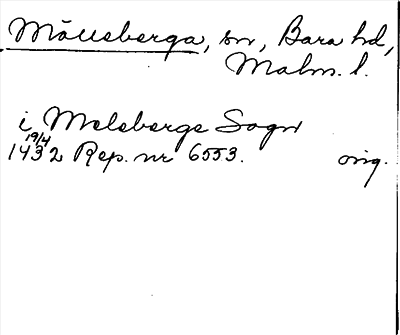 Mölleberga, sn, Bara hd,
Malm. l.
i Meleberge Sogn
19/4
1432 Rep. nr 6553. orig.